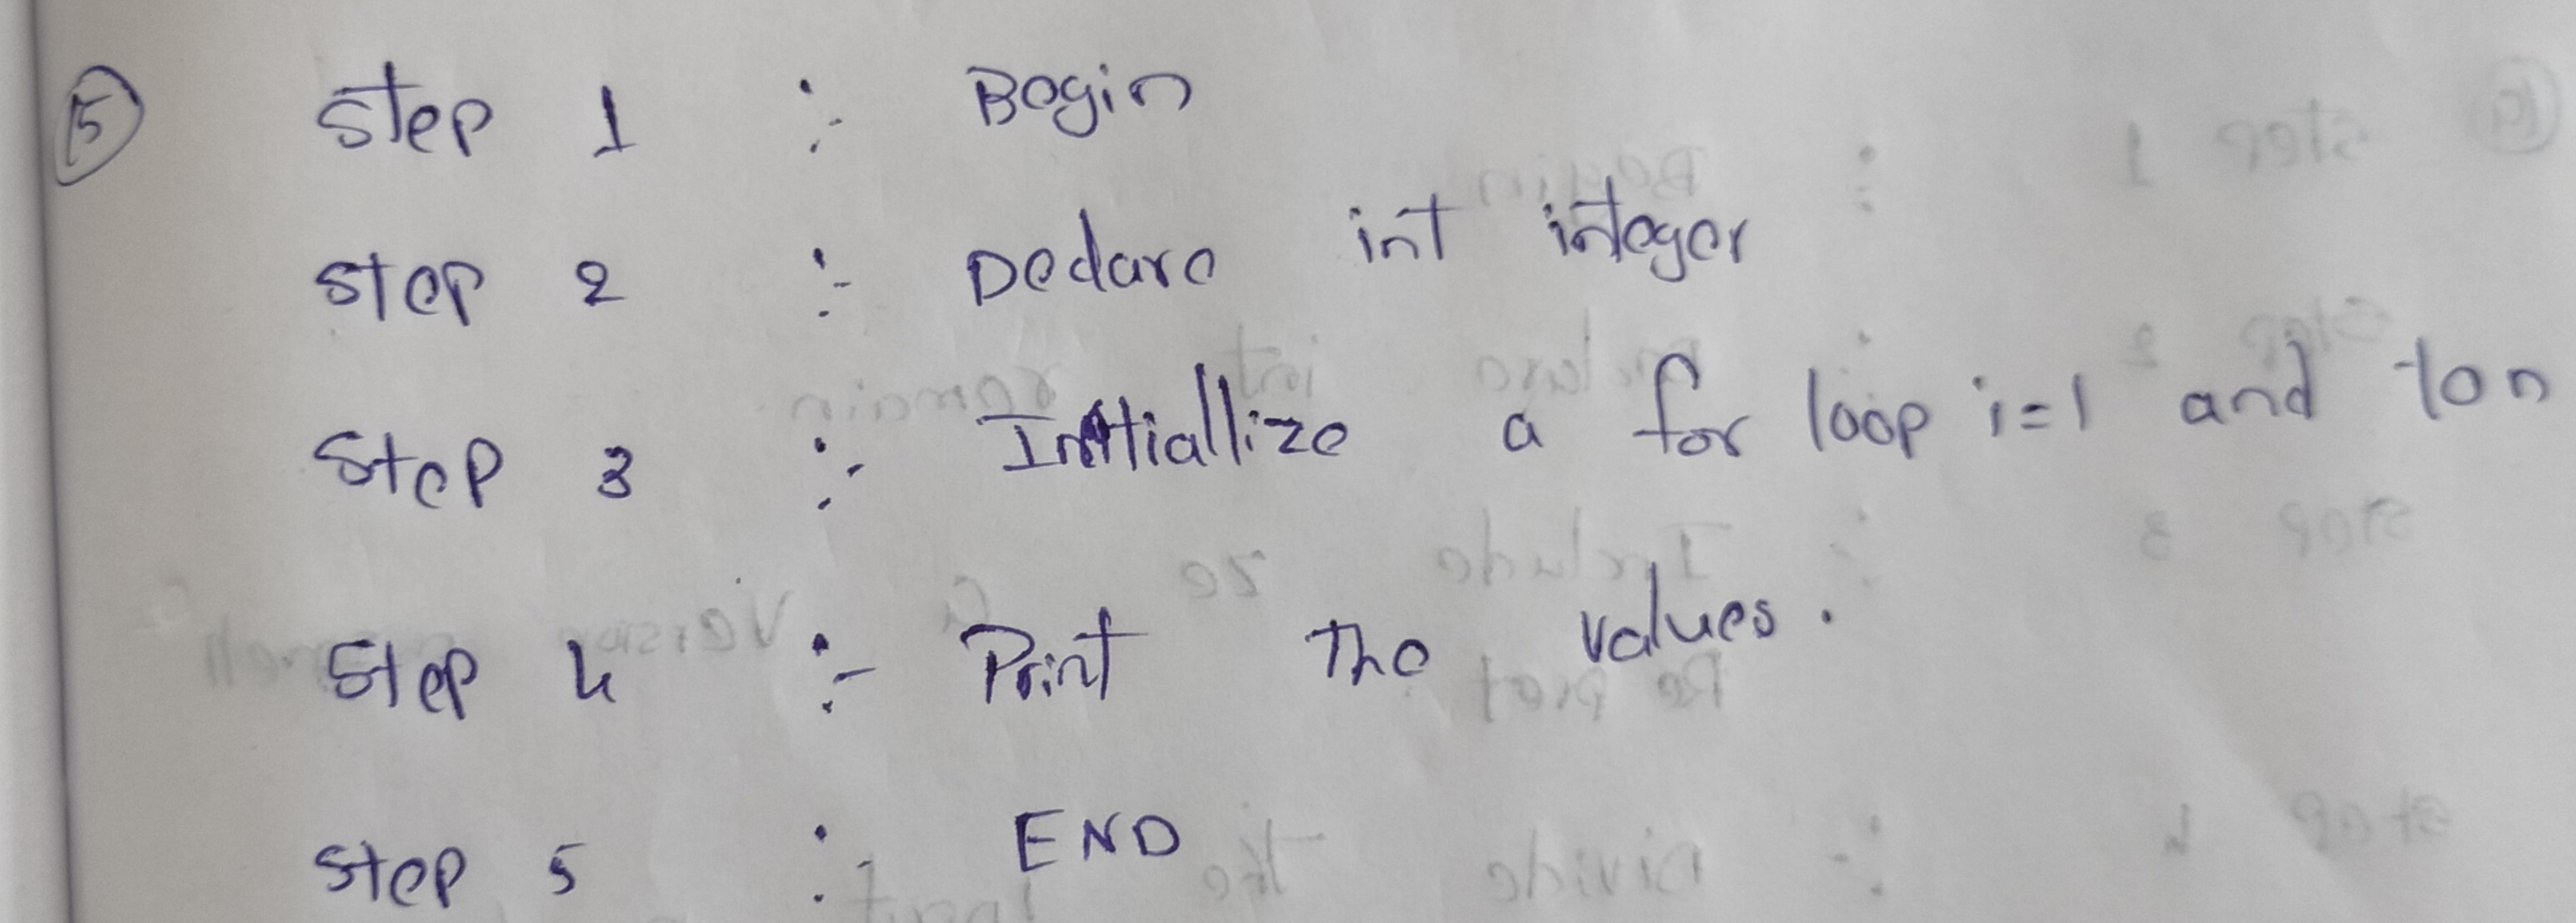 5 Step 1 :- Begin
Step 2 :- Declare int integer
Step 3 :- Initiallize a for loop i=1 and to n
Step 4 :- Print the values.
Step 5 :- END